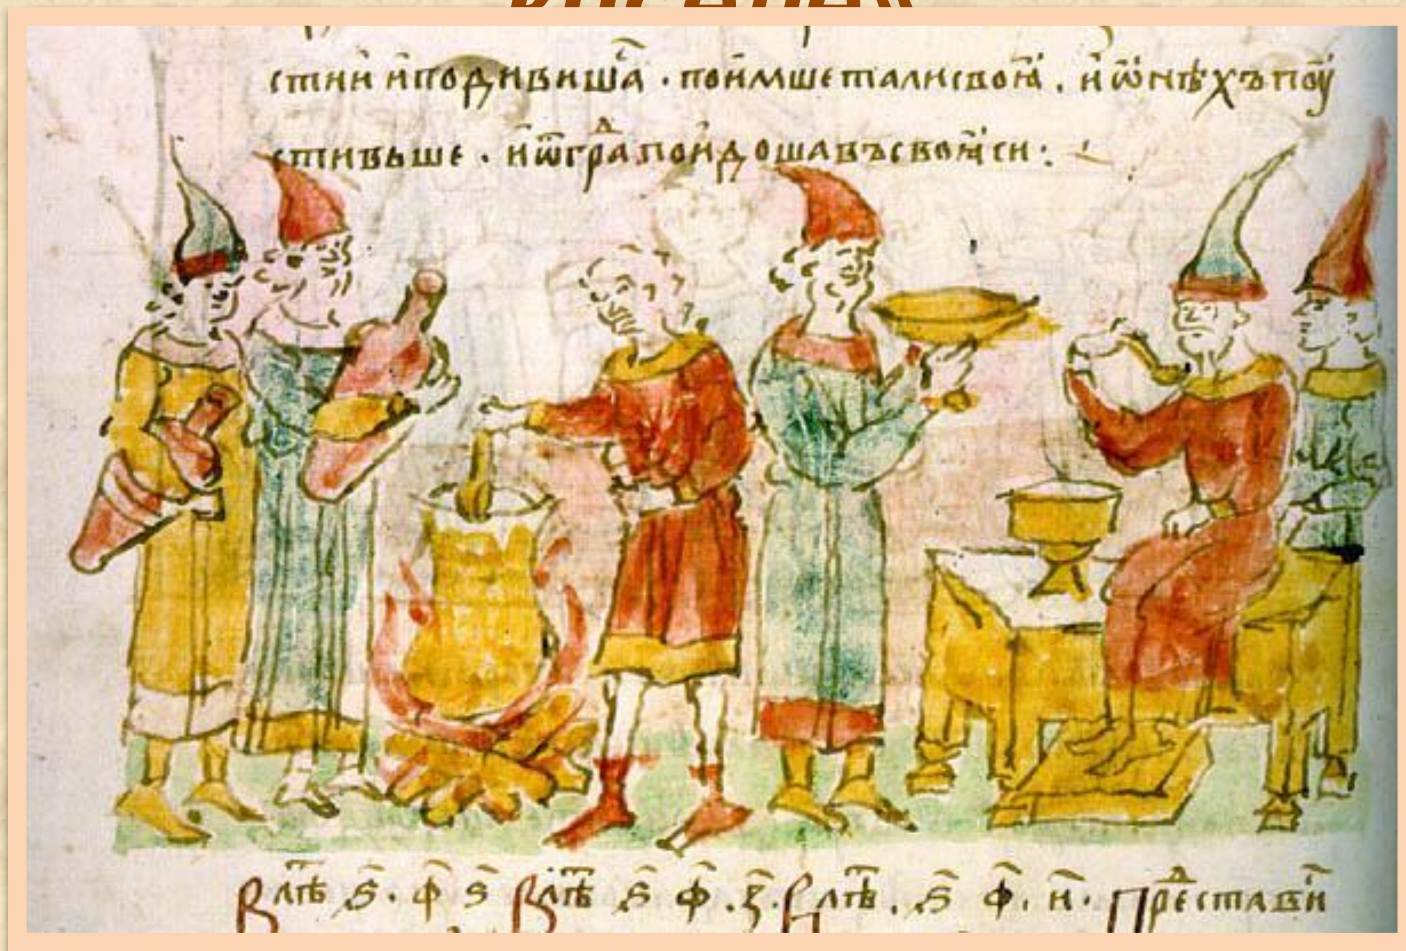 стии и подивишⷭа · поимше тали своꙗ · и ѡнѣхъ поу
стивьше · и ѿ граⷣ поидоша въсвоꙗси :
В лⷮѣ ѕ҃ · ф҃ ѕ҃ В лⷮѣ ѕ҃ ф҃ · з҃ · В лⷮѣ · ѕ҃ ф҃ · и҃ · Преⷣстави